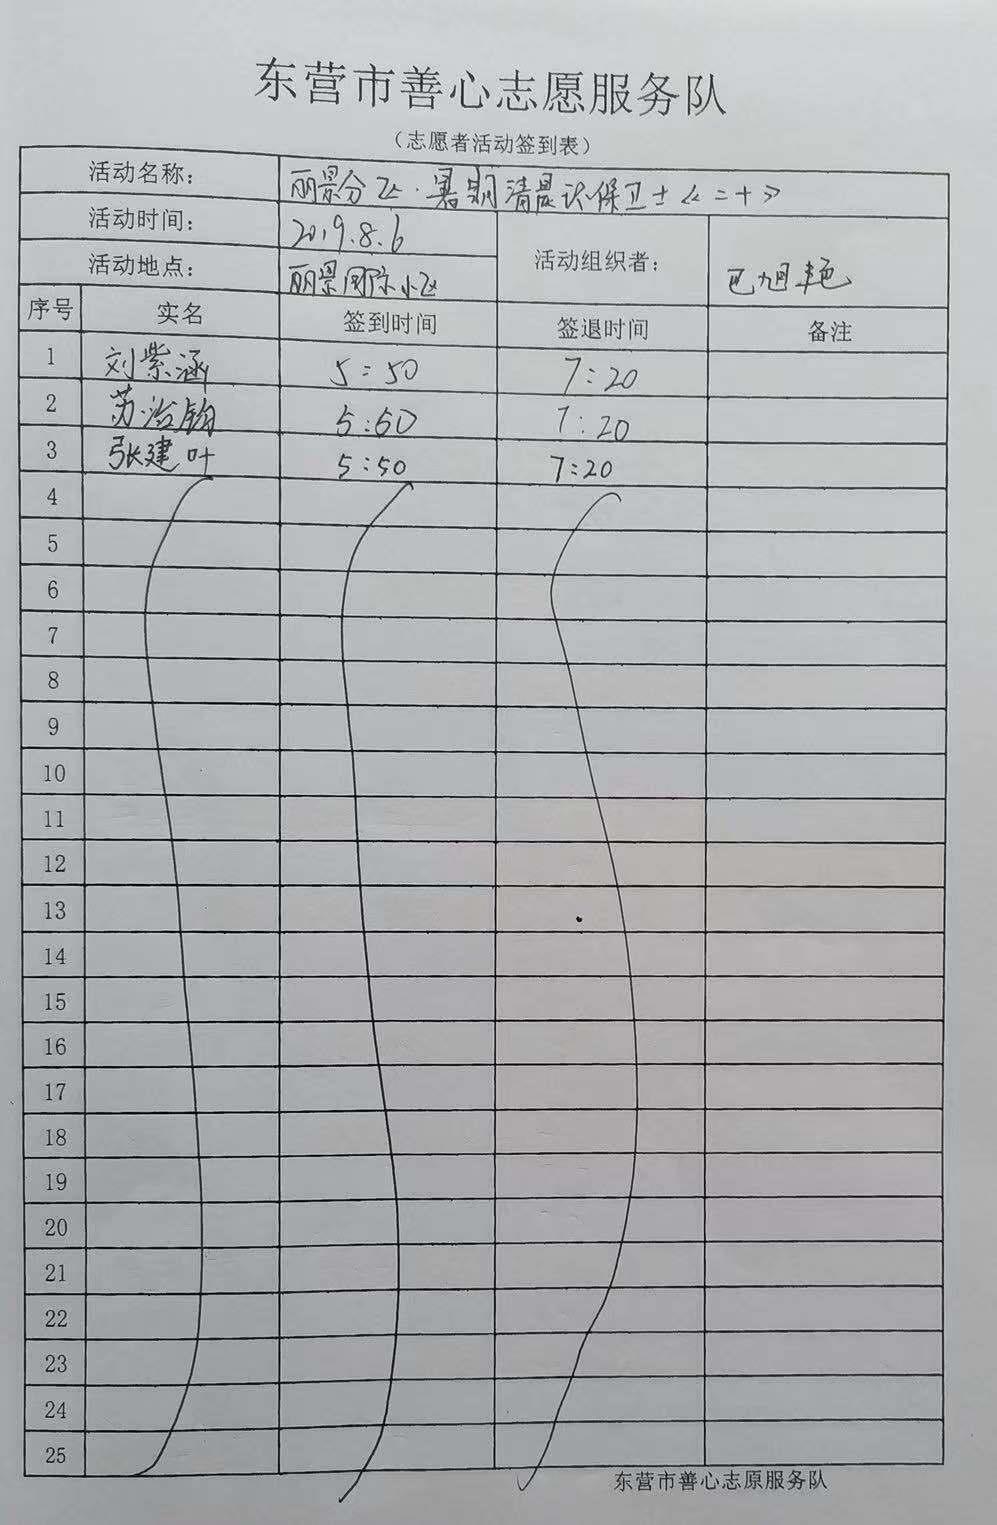 东营市善心志愿服务队
（志愿者活动签到表）
活动名称： 丽景分区·暑期清晨环保卫士《二十》
活动时间： 2019.8.6
活动组织者：
活动地点： 丽景国际小区
序号 实名 签到时间 签退时间 备注
1 刘紫涵 5:50 7:20
2 苏治钧 5:50 7:20
3 张建叶 5:50 7:20
4
5
6
7
8
9
10
11
12
13
14
15
16
17
18
19
20
21
22
23
24
25
东营市善心志原服务队